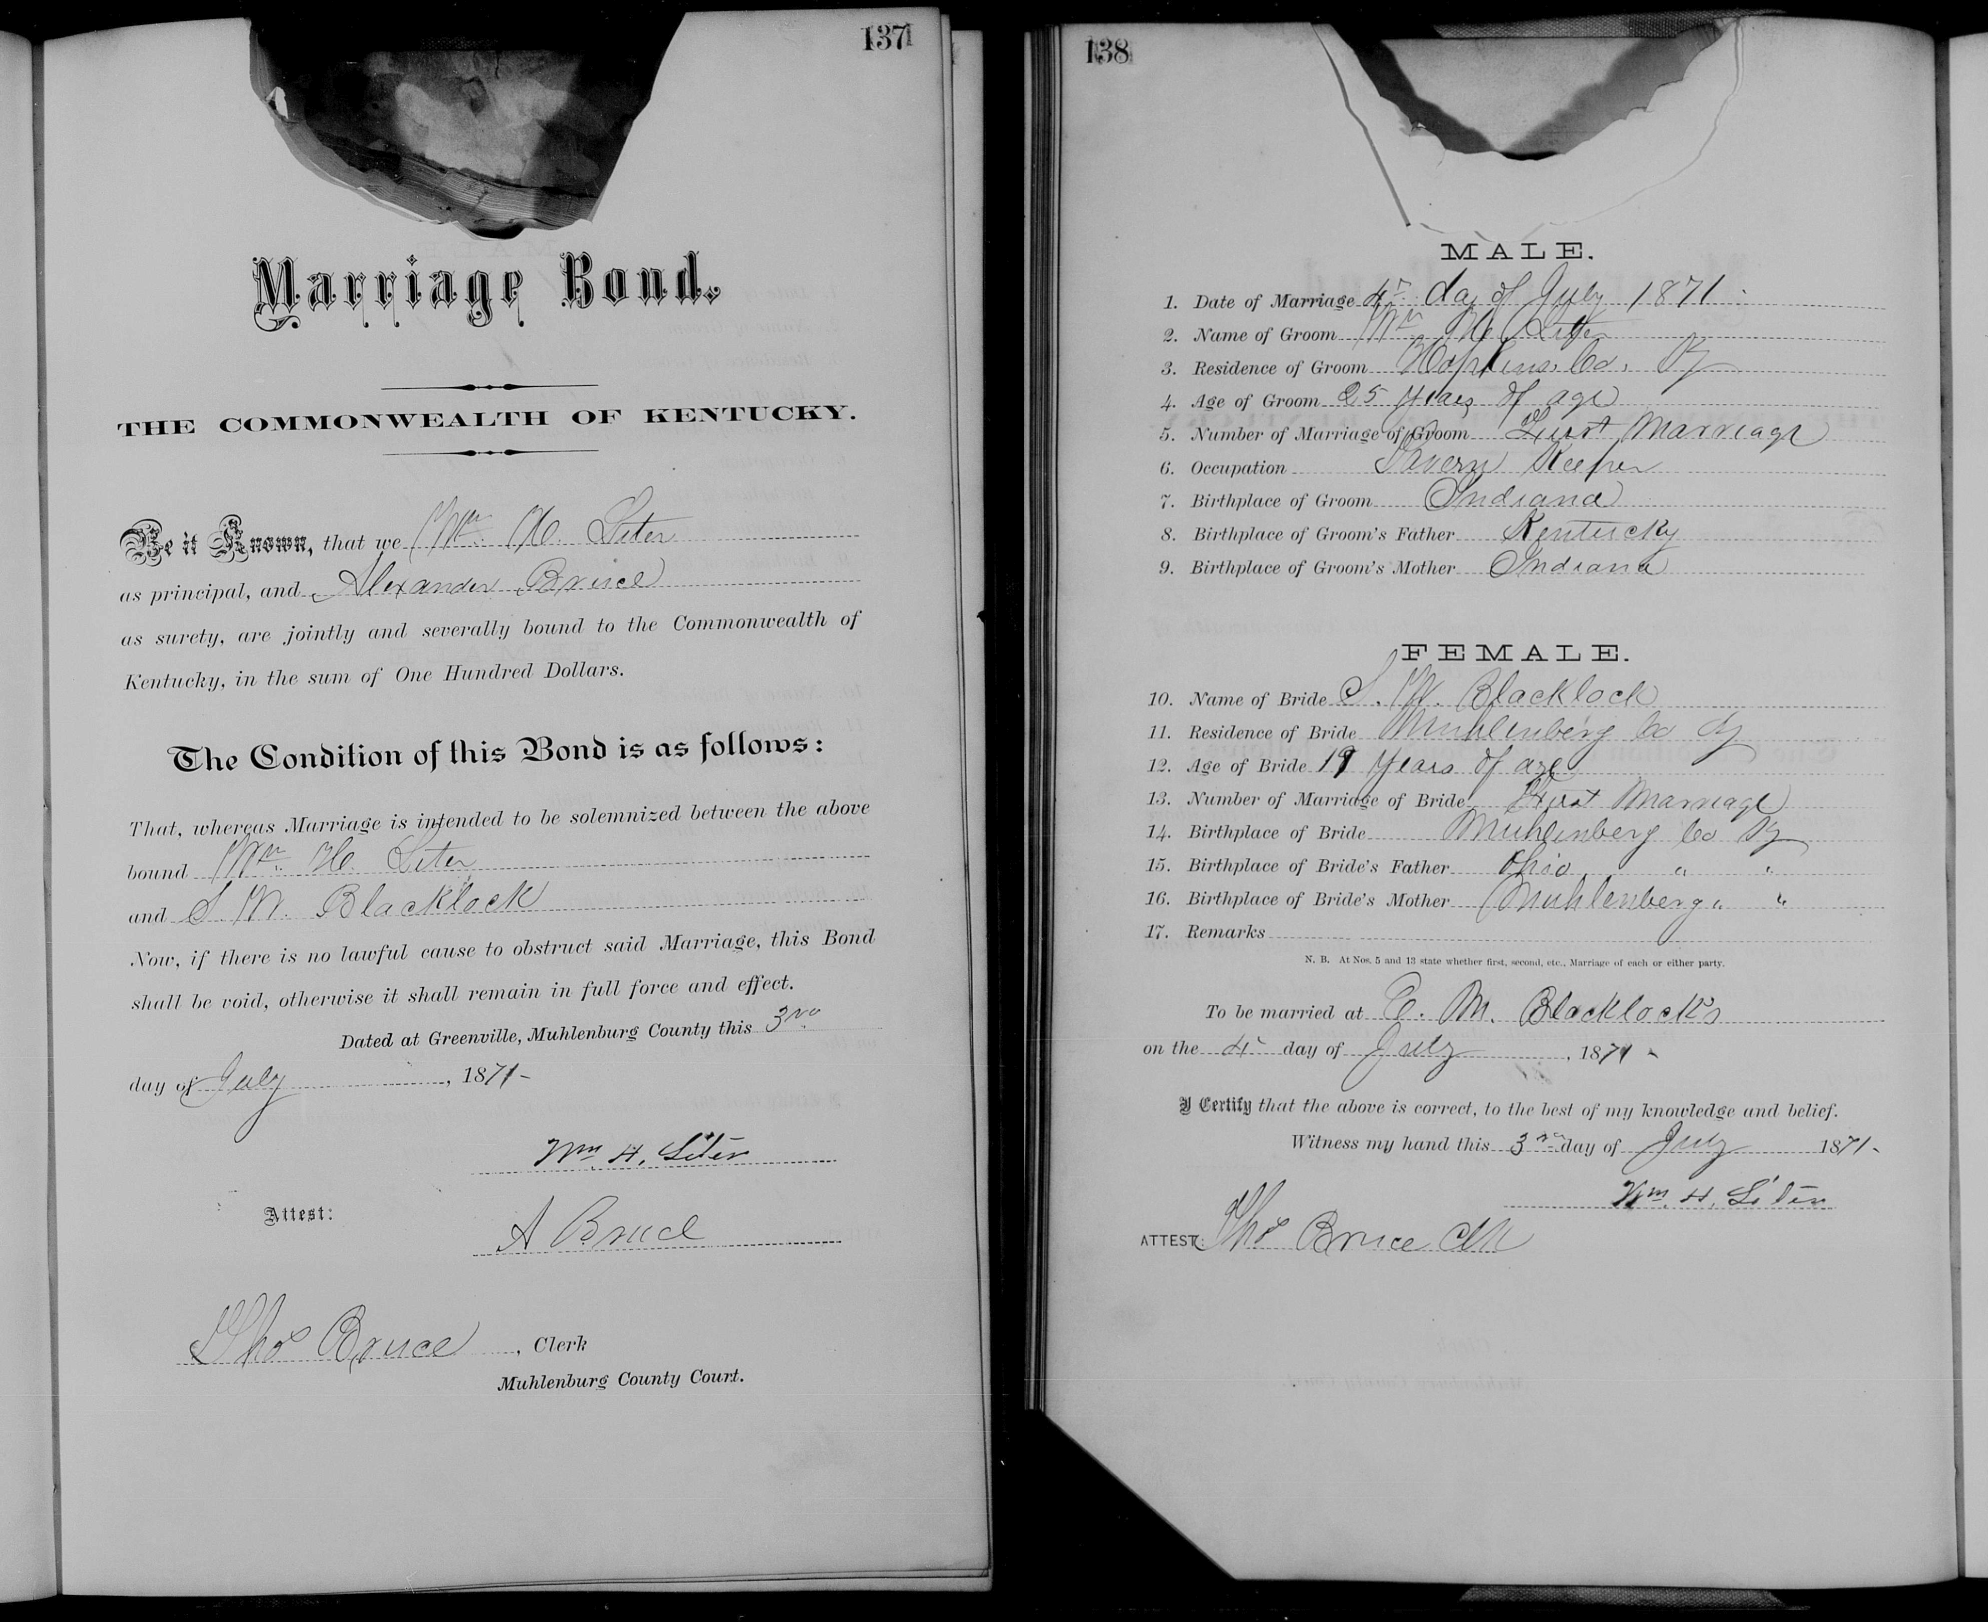 137
Marriage Bond.
THE COMMONWEALTH OF KENTUCKY.
Be it Known, that we Wm. H. Liter
as principal, and Alexander Bruce
as surety, are jointly and severally bound to the Commonwealth of
Kentucky, in the sum of One Hundred Dollars.
The Condition of this Bond is as follows:
That, whereas Marriage is intended to be solemnized between the above
bound Wm. H. Liter
and S. M. Blacklock
Now, if there is no lawful cause to obstruct said Marriage, this Bond
shall be void, otherwise it shall remain in full force and effect.
Dated at Greenville, Muhlenburg County this 3rd
day of July, 1871-
Wm. H. Liter
Attest:
A Bruce
Thos Bruce, Clerk
Muhlenburg County Court.
138
MALE.
1. Date of Marriage 4th day of July 1871
2. Name of Groom Wm H Liter
3. Residence of Groom Hopkins Co. Ky
4. Age of Groom 25 years of age
5. Number of Marriage of Groom First Marriage
6. Occupation Tavern Keeper
7. Birthplace of Groom Indiana
8. Birthplace of Groom's Father Kentucky
9. Birthplace of Groom's Mother Indiana
FEMALE.
10. Name of Bride S. M. Blacklock
11. Residence of Bride Muhlenberg Co Ky
12. Age of Bride 19 years of age
13. Number of Marriage of Bride First Marriage
14. Birthplace of Bride Muhlenberg Co Ky
15. Birthplace of Bride's Father Ohio " "
16. Birthplace of Bride's Mother Muhlenberg " "
17. Remarks
N. B. At Nos. 5 and 13 state whether first, second, etc., Marriage of each or either party.
To be married at E. M. Blacklock's
on the 4th day of July, 1871-
I Certify that the above is correct, to the best of my knowledge and belief.
Witness my hand this 3rd day of July 1871-
Wm. H. Liter
ATTEST: Thos Bruce Clk